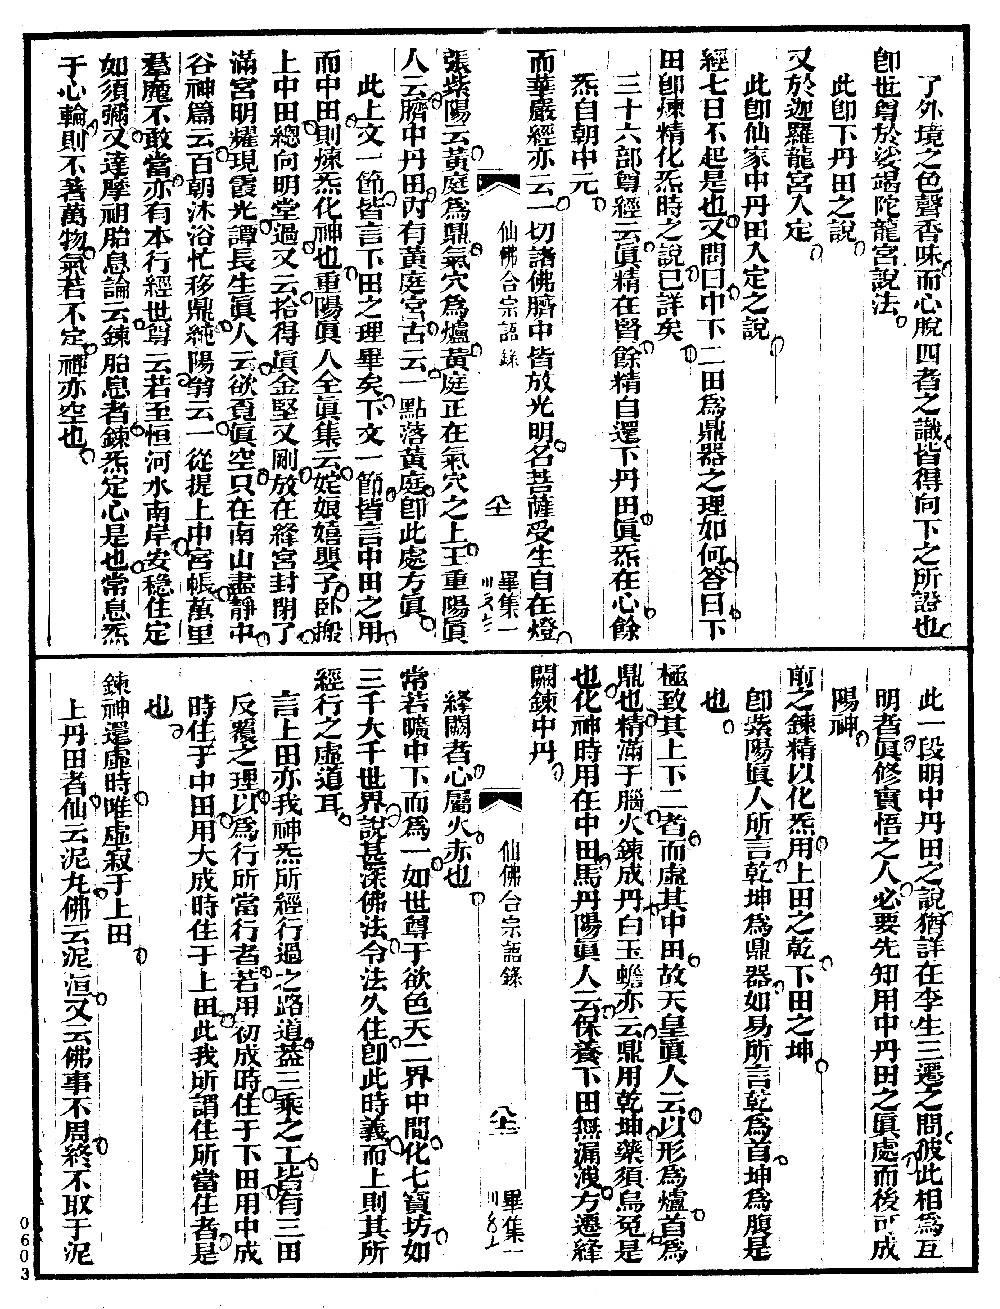 了外境之色聲香味而心脫四者之識皆得向下之所證也
卽世尊於娑竭陀龍宮說法
此卽下丹田之說
又於迦羅龍宮入定
此卽仙家中丹田入定之說
經七日不起是也又問曰中下二田爲鼎器之理如何答曰下
田卽煉精化炁時之說已詳矣
三十六部尊經云眞精在腎餘精自還下丹田眞炁在心餘
炁自朝中元
而華嚴經亦云一切諸佛臍中皆放光明名菩薩受生自在燈
仙佛合宗語錄
畢集一
張紫陽云黃庭爲鼎氣穴爲爐黃庭正在氣穴之上王重陽眞
人云臍中丹田內有黃庭宮古云一點落黃庭卽此處方眞
此上文一節皆言下田之理畢矣下文一節皆言中田之用
而中田則煉炁化神也重陽眞人全眞集云姹娘嬉嬰子臥搬
上中田總向明堂過又云拾得眞金堅又剛放在絳宮封閉了
滿宮明耀現霞光譚長生眞人云欲覓眞空只在南山盡靜中
谷神爲云百朝沐浴忙移鼎純陽翁云一從提上中宮帳萬里
羣魔不敢當亦有本行經世尊云若至恒河水南岸安穩住定
如須彌又達摩祖胎息論云鍊胎息者鍊炁定心是也常息炁
于心輪則不著萬物氣若不定禪亦空也
此一段明中丹田之說猶詳在李生三遷之問彼此相爲互
明者眞修實悟之人必要先知用中丹田之眞處而後可成
陽神
前之鍊精以化炁用上田之乾下田之坤
卽紫陽眞人所言乾坤爲鼎器如易所言乾爲首坤爲腹是
也
極致其上下二者而處其中田故天皇眞人云以形爲爐首爲
鼎也精滿于腦火鍊成丹白玉蟾亦云鼎用乾坤藥須烏兔是
也化神時用在中田馬丹陽眞人云保養下田無漏洩方遷絳
闕鍊中丹
仙佛合宗語錄
畢集一
絳闕者心屬火赤也
常若曠中下而爲一如世尊于欲色天二界中間化七寶坊如
三千大千世界說甚深佛法令法久住卽此時義而上則其所
經行之虛道耳
言上田亦我神炁所經行過之路道蓋三乘之工皆有三田
反覆之理以爲行所當行者若用初成時住于下田用中成
時住于中田用大成時住于上田此我所謂住所當住者是
也
鍊神還虛時唯虛寂于上田
上丹田者仙云泥丸佛云泥洹又云佛事不周終不取于泥
0603